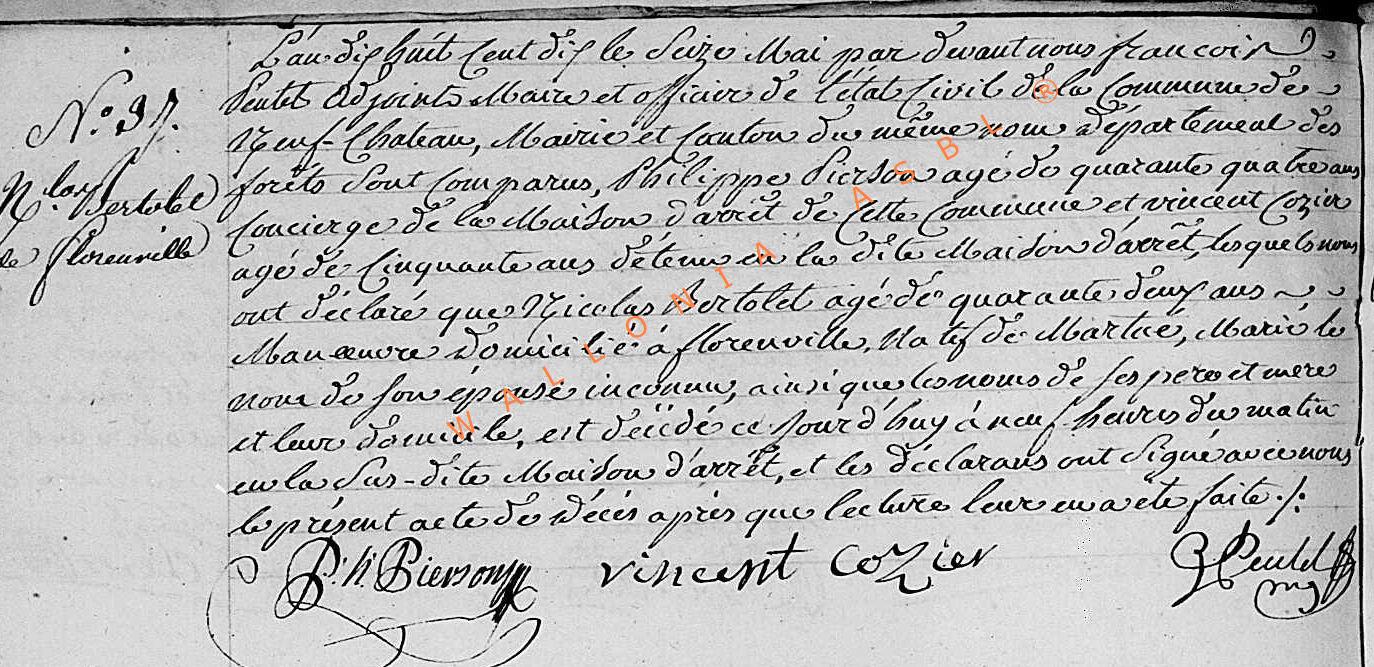 N.° 37.
N.las Bertolet
de florenville
L'an dix huit Cent dix le Seize Mai par devant nous françois
Peulet Adjoint Maire et officier de l'état Civil de la Commune de
Neuf-Chateau, Mairie et Canton du même nom département des
forêts Sont Comparus, Philippe Pierson agé de quarante quatre ans
Concierge de la Maison d'arrêt de Cette Commune et vincent Cozier
agé de Cinquante ans détenu en la dite Maison d'arrêt, lesquels nous
ont déclaré que Nicolas Bertolet agé de quarante deux ans
Manœuvre Domicilié à florenville, Natif de Martué, Marié le
nom de son épouse inconnu, ainsi que les noms de ses pere et mere
et leur domicile, est décédé ce Jourd'huy à neuf heures du matin
en la Sus-dite Maison d'arrêt, et les déclarans ont Signé avec nous
le présent acte de décès après que lecture leur en a été faite ./.
Ph Pierson vincent cozier
WALLONIA ASBL ®